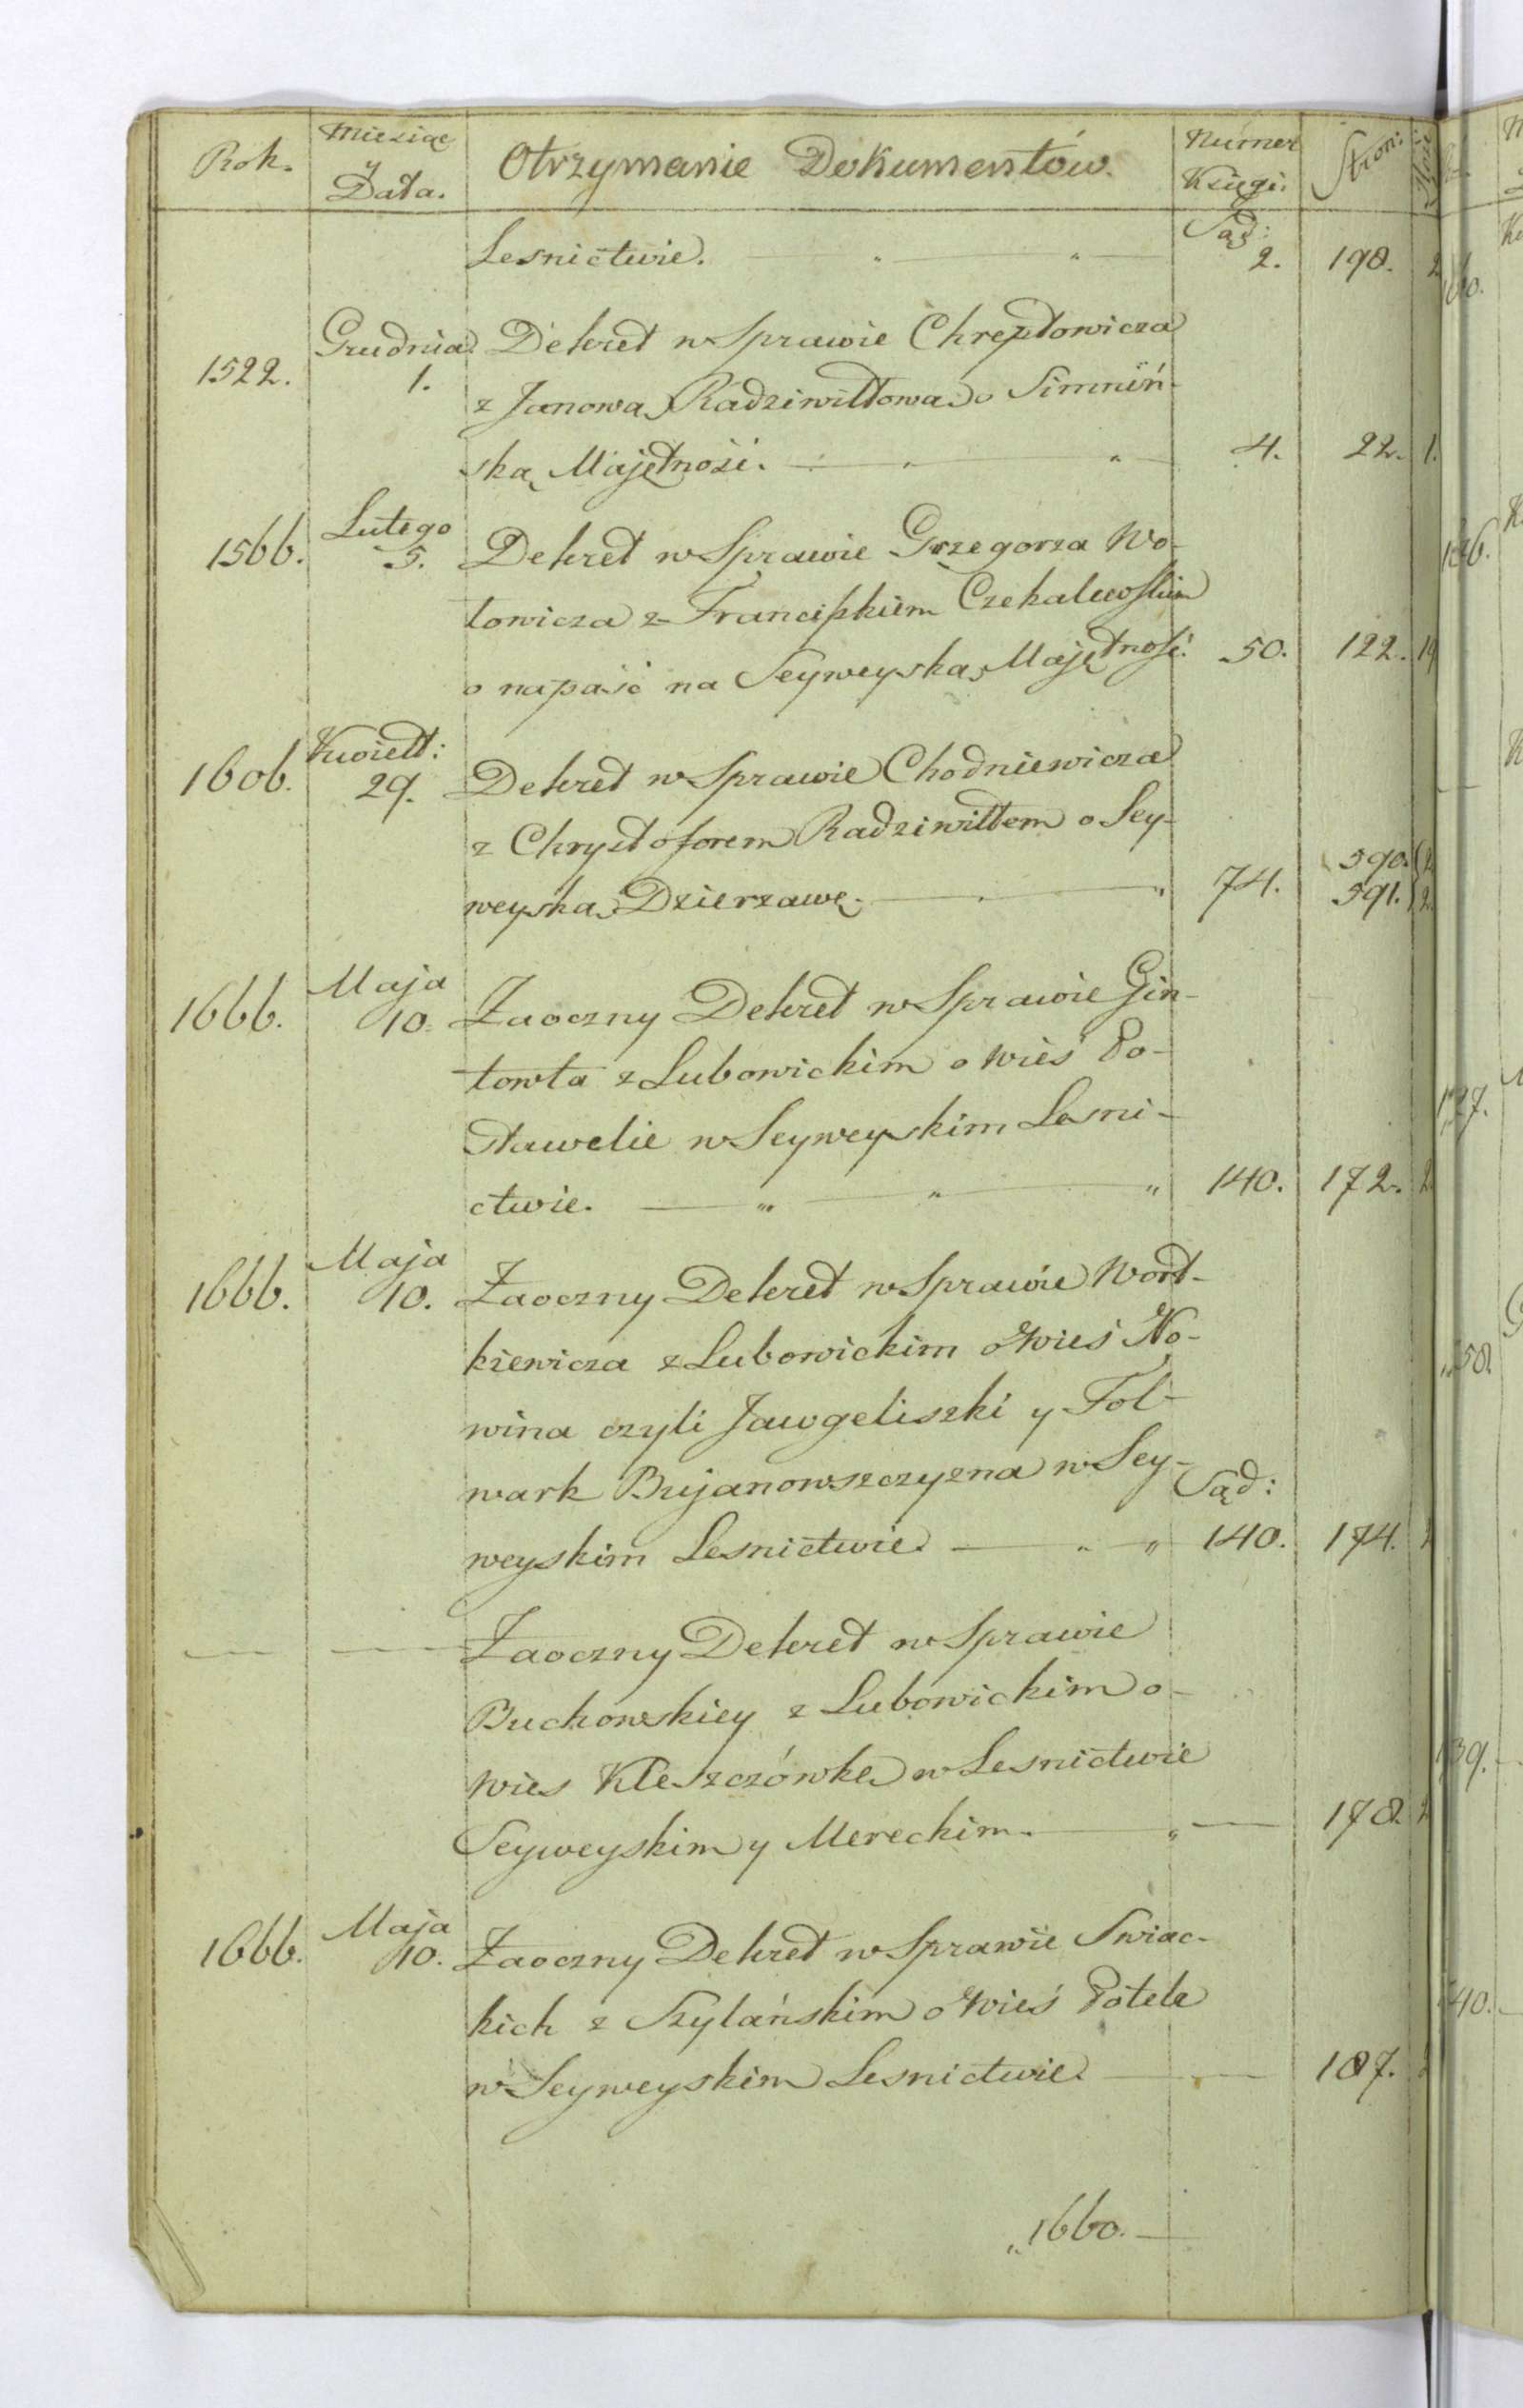 Rok. Miesiąc y Data. Otrzymanie Dokumentów. Numer Księgi: Stron:
Lesnictwie. Sąd: 2. 198.
Grudnia Dekret w Sprawie Chreptowicza
1522. 1. z Janową Radziwiłłową o Simniń-
ską Majętność. 4. 22. 1.
Lutego
1566. 5. Dekret w Sprawie Grzegorza Wo-
łowicza z Franciszkiem Czekalewskim
o napaść na Seyweyską Majętność. 50. 122.
Kwiett:
1606. 29. Dekret w Sprawie Chodniewicza
z Chrysztoforem Radziwiłłem o Sey-
weyską Dzierzawę. 74. 590. 591.
Maja
1666. 10. Zaoczny Dekret w Sprawie Gin-
towta z Lubowickim o Wieś Po-
stawelie w Seyweyskim Lesni-
ctwie. 140. 172.
Maja
1666. 10. Zaoczny Dekret w Sprawie Wort-
kiewicza z Lubowickim o Wieś No-
wina czyli Jawgeliszki y Fol-
wark Bujanowszczyzna w Sey-
weyskim Lesnictwie. Sąd: 140. 174.
Zaoczny Dekret w Sprawie
Buchowskiey z Lubowickim o
Wies Kleszczówkę w Lesnictwie
Seyweyskim y Mereckim. 178.
Maja
1666. 10. Zaoczny Dekret w Sprawie Swiac-
kich z Szylańskim o Wieś Potele
w Seyweyskim Lesnictwie. 187.
1660.